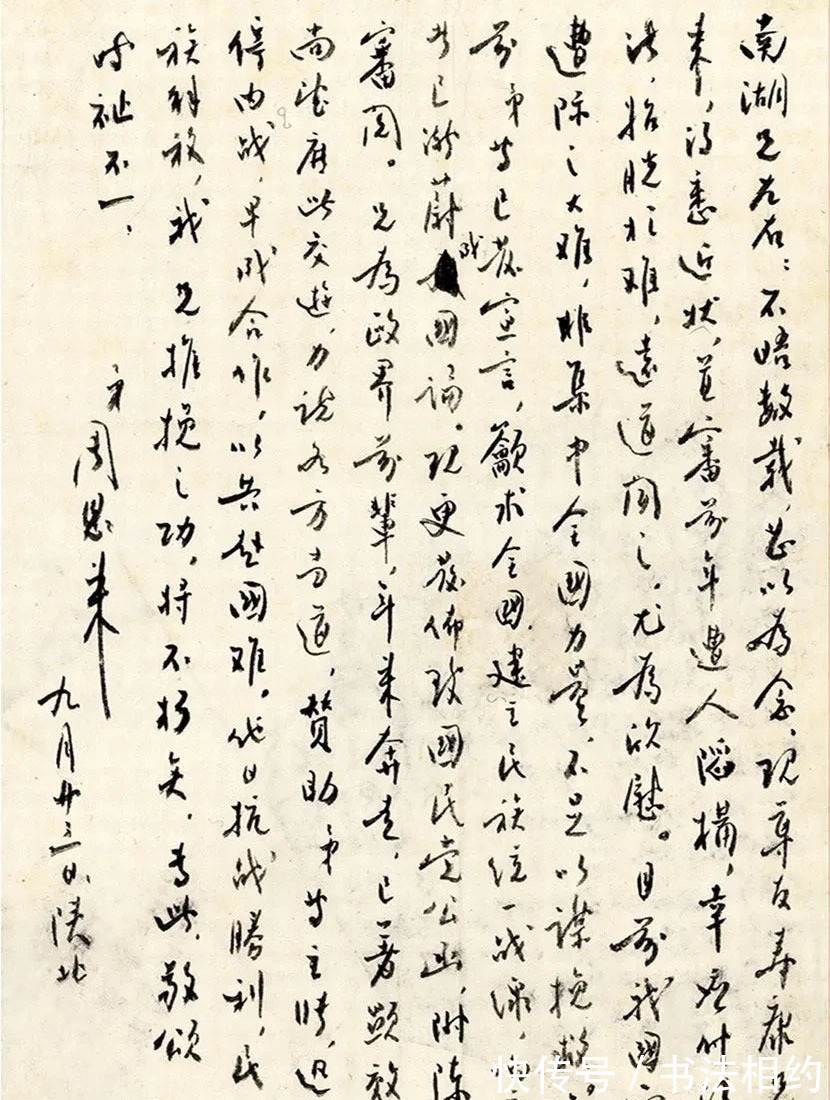 南湖兄左右：不晤数载，甚以为念，现章友奉康兄
来，得悉近状，并审前年遭人陷构，幸为时
决，始脱于难，远道闻之，尤为欣慰。目前我国
遭际之大难，非集中全国力量，不足以谋挽救
前弟等已发宣言，籲求全国建立民族统一战线，
者已渐蔚成国论。现更发佈致国民党公函，附陈
審阅。兄为政界前輩，年来奔走，已著顕效
尚望广此交遊，力说各方当道，赞助弟等主张，迅
停内战，早成合作，以共赴國难。他日抗战勝利，民
族解放，我兄推挽之功，将不朽矣，专此，敬颂
时祉不一，
弟
周恩来
九月廿三日陕北
快传号 / 书法相约